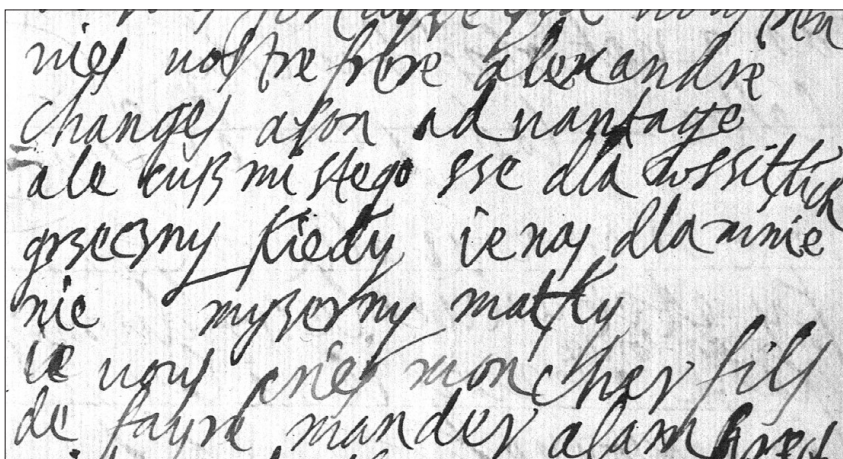 nies vostre frere alexandre
changes a son advantage
ale cusz mi stego sse dla wssitkich
grzeczny kiedy ienos dla mnie
nie myzerny matky
ie vous prie mon cher fils
de fayre mander a lambrest